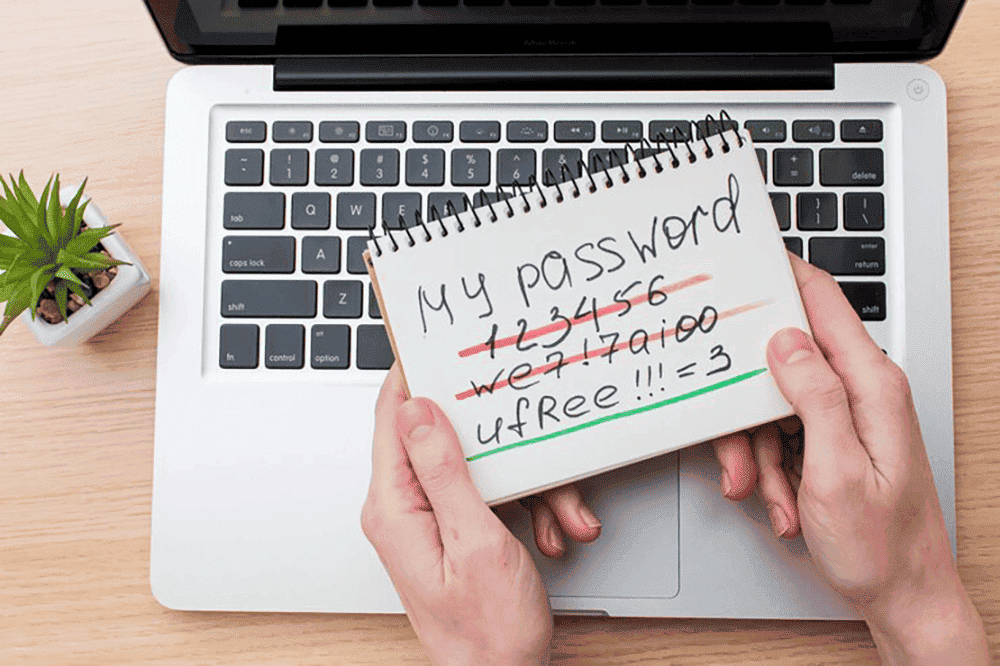 MacBook
esc
~ ` ! 1 @ 2 # 3 $ 4 % 5 ^ 6 & + = delete
tab Q W E } ] | \
caps lock A enter return
shift Z shift
fn control alt option
My password
123456
we7!7aioo
ufRee!!!=3